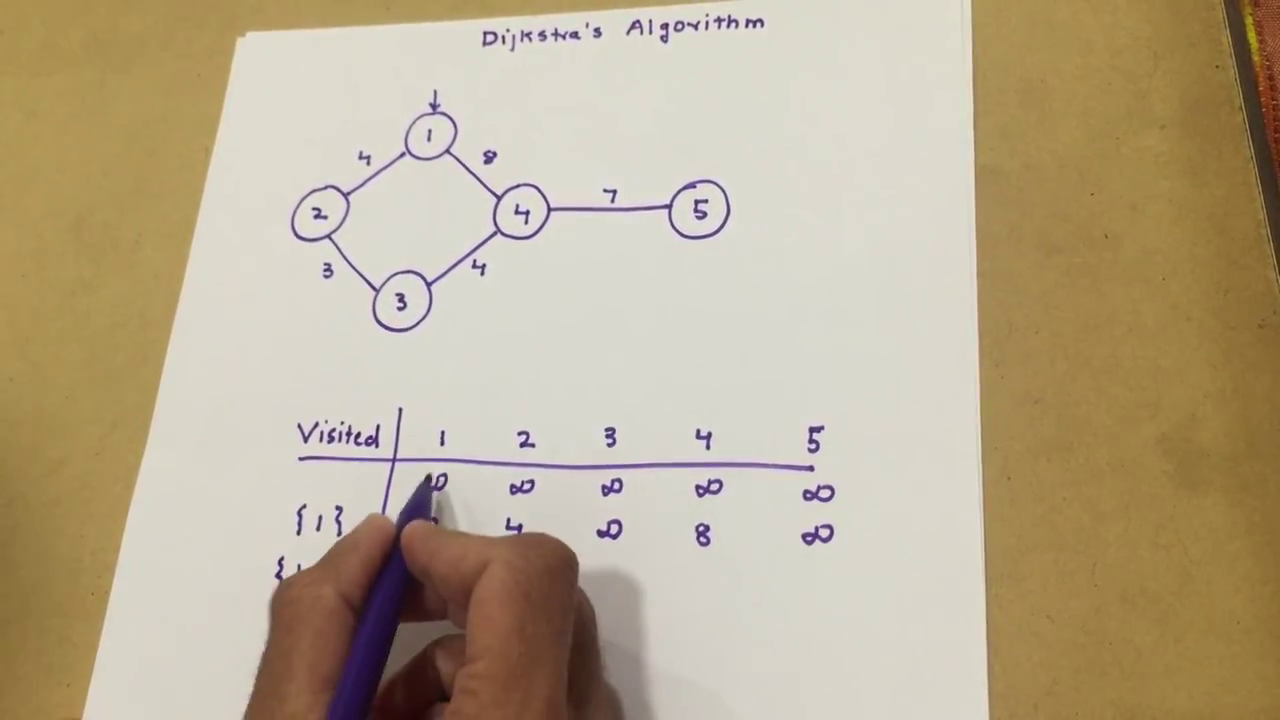 Dijkstra's Algorithm
1
4 8
2 4 7 5
3 4
3
Visited 1 2 3 4 5
∞ ∞ ∞ ∞ ∞
{1} 4 ∞ 8 ∞
{1